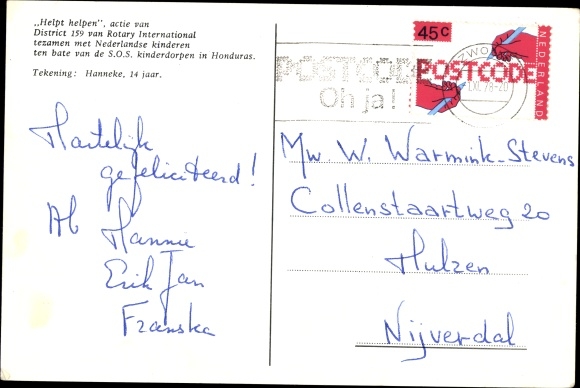 „Helpt helpen", actie van
District 159 van Rotary International
tezamen met Nederlandse kinderen
ten bate van de S.O.S. kinderdorpen in Honduras.
Tekening: Hanneke, 14 jaar.
Hartelijk
gefeliciteerd!
Ab Hannie
Erik Jan
Franska
45c
NEDERLAND
POSTCODE
POSTCODE
Oh ja!
ZWO
Mw. W. Warmink-Stevens
Collenstaartweg 20
Hulzen
Nijverdal